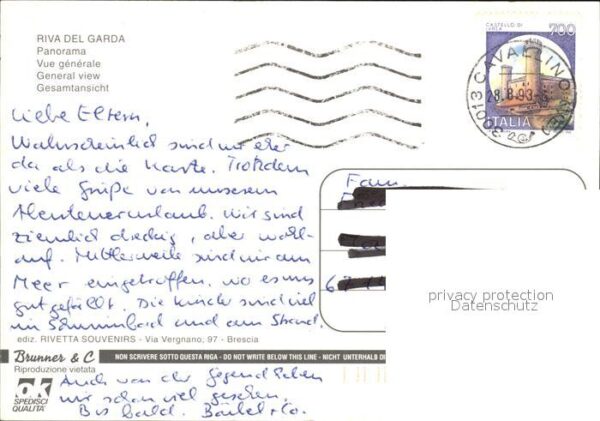 RIVA DEL GARDA
Panorama
Vue générale
General view
Gesamtansicht
Liebe Eltern,
Wahrscheinlich sind wir eher
da als die Karte. Trotzdem
viele Grüße von unserem
Abenteuerurlaub. Wir sind
ziemlich dreckig, aber wohl-
auf. Mittlerweile sind wir am
Meer eingetroffen, wo es uns
gut gefällt. Die Kinder sind viel
im Schwimmbad und am Strand.
ediz. RIVETTA SOUVENIRS - Via Vergnano, 97 - Brescia
Brunner & C
NON SCRIVERE SOTTO QUESTA RIGA - DO NOT WRITE BELOW THIS LINE - NICHT UNTERHALB
Riproduzione vietata
OK
SPEDISCI
QUALITA'
Auch von der Gegend haben
wir schon viel gesehen.
Bis bald.
CASTELLO DI
700
30013 CAVALLINO
28.8.93
ITALIA
Fam.
privacy protection
Datenschutz